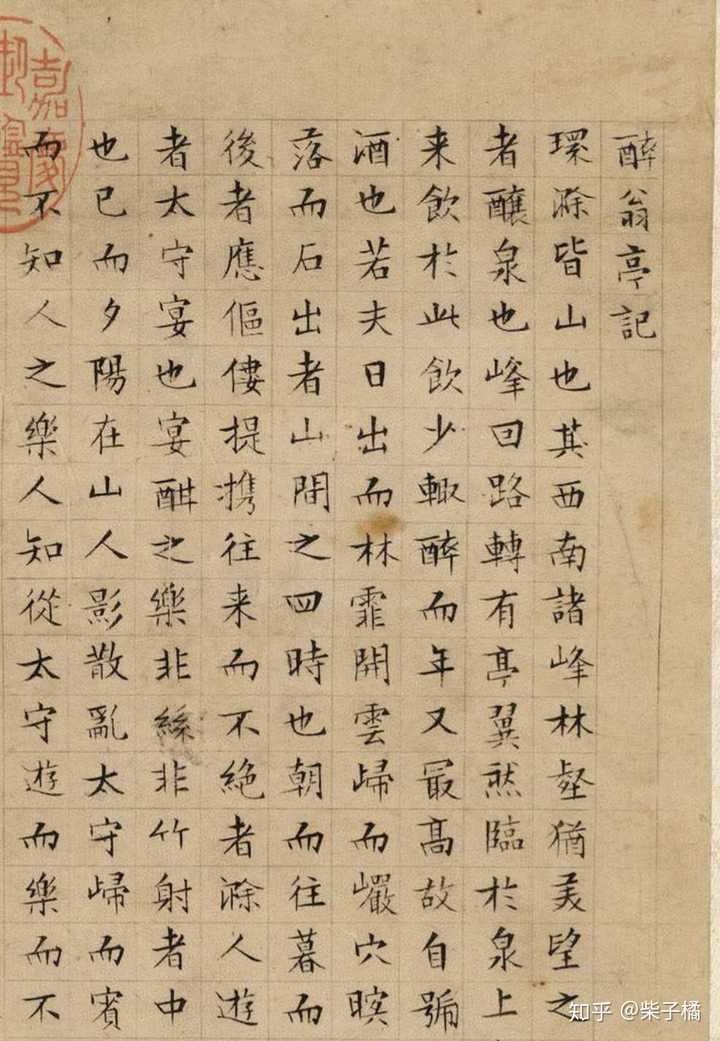 醉翁亭記
環滁皆山也其西南諸峰林壑猶美望之
者釀泉也峰回路轉有亭翼然臨於泉上
来飲於此飲少輒醉而年又最高故自號
酒也若夫日出而林霏開雲歸而巖穴暝
落而石出者山間之四時也朝而往暮而
後者應傴僂提携往来而不絕者滁人遊
者太守宴也宴酣之樂非絲非竹射者中
也已而夕陽在山人影散亂太守歸而賓
而不知人之樂人知從太守遊而樂而不
嘉慶
知乎 @柴子橘